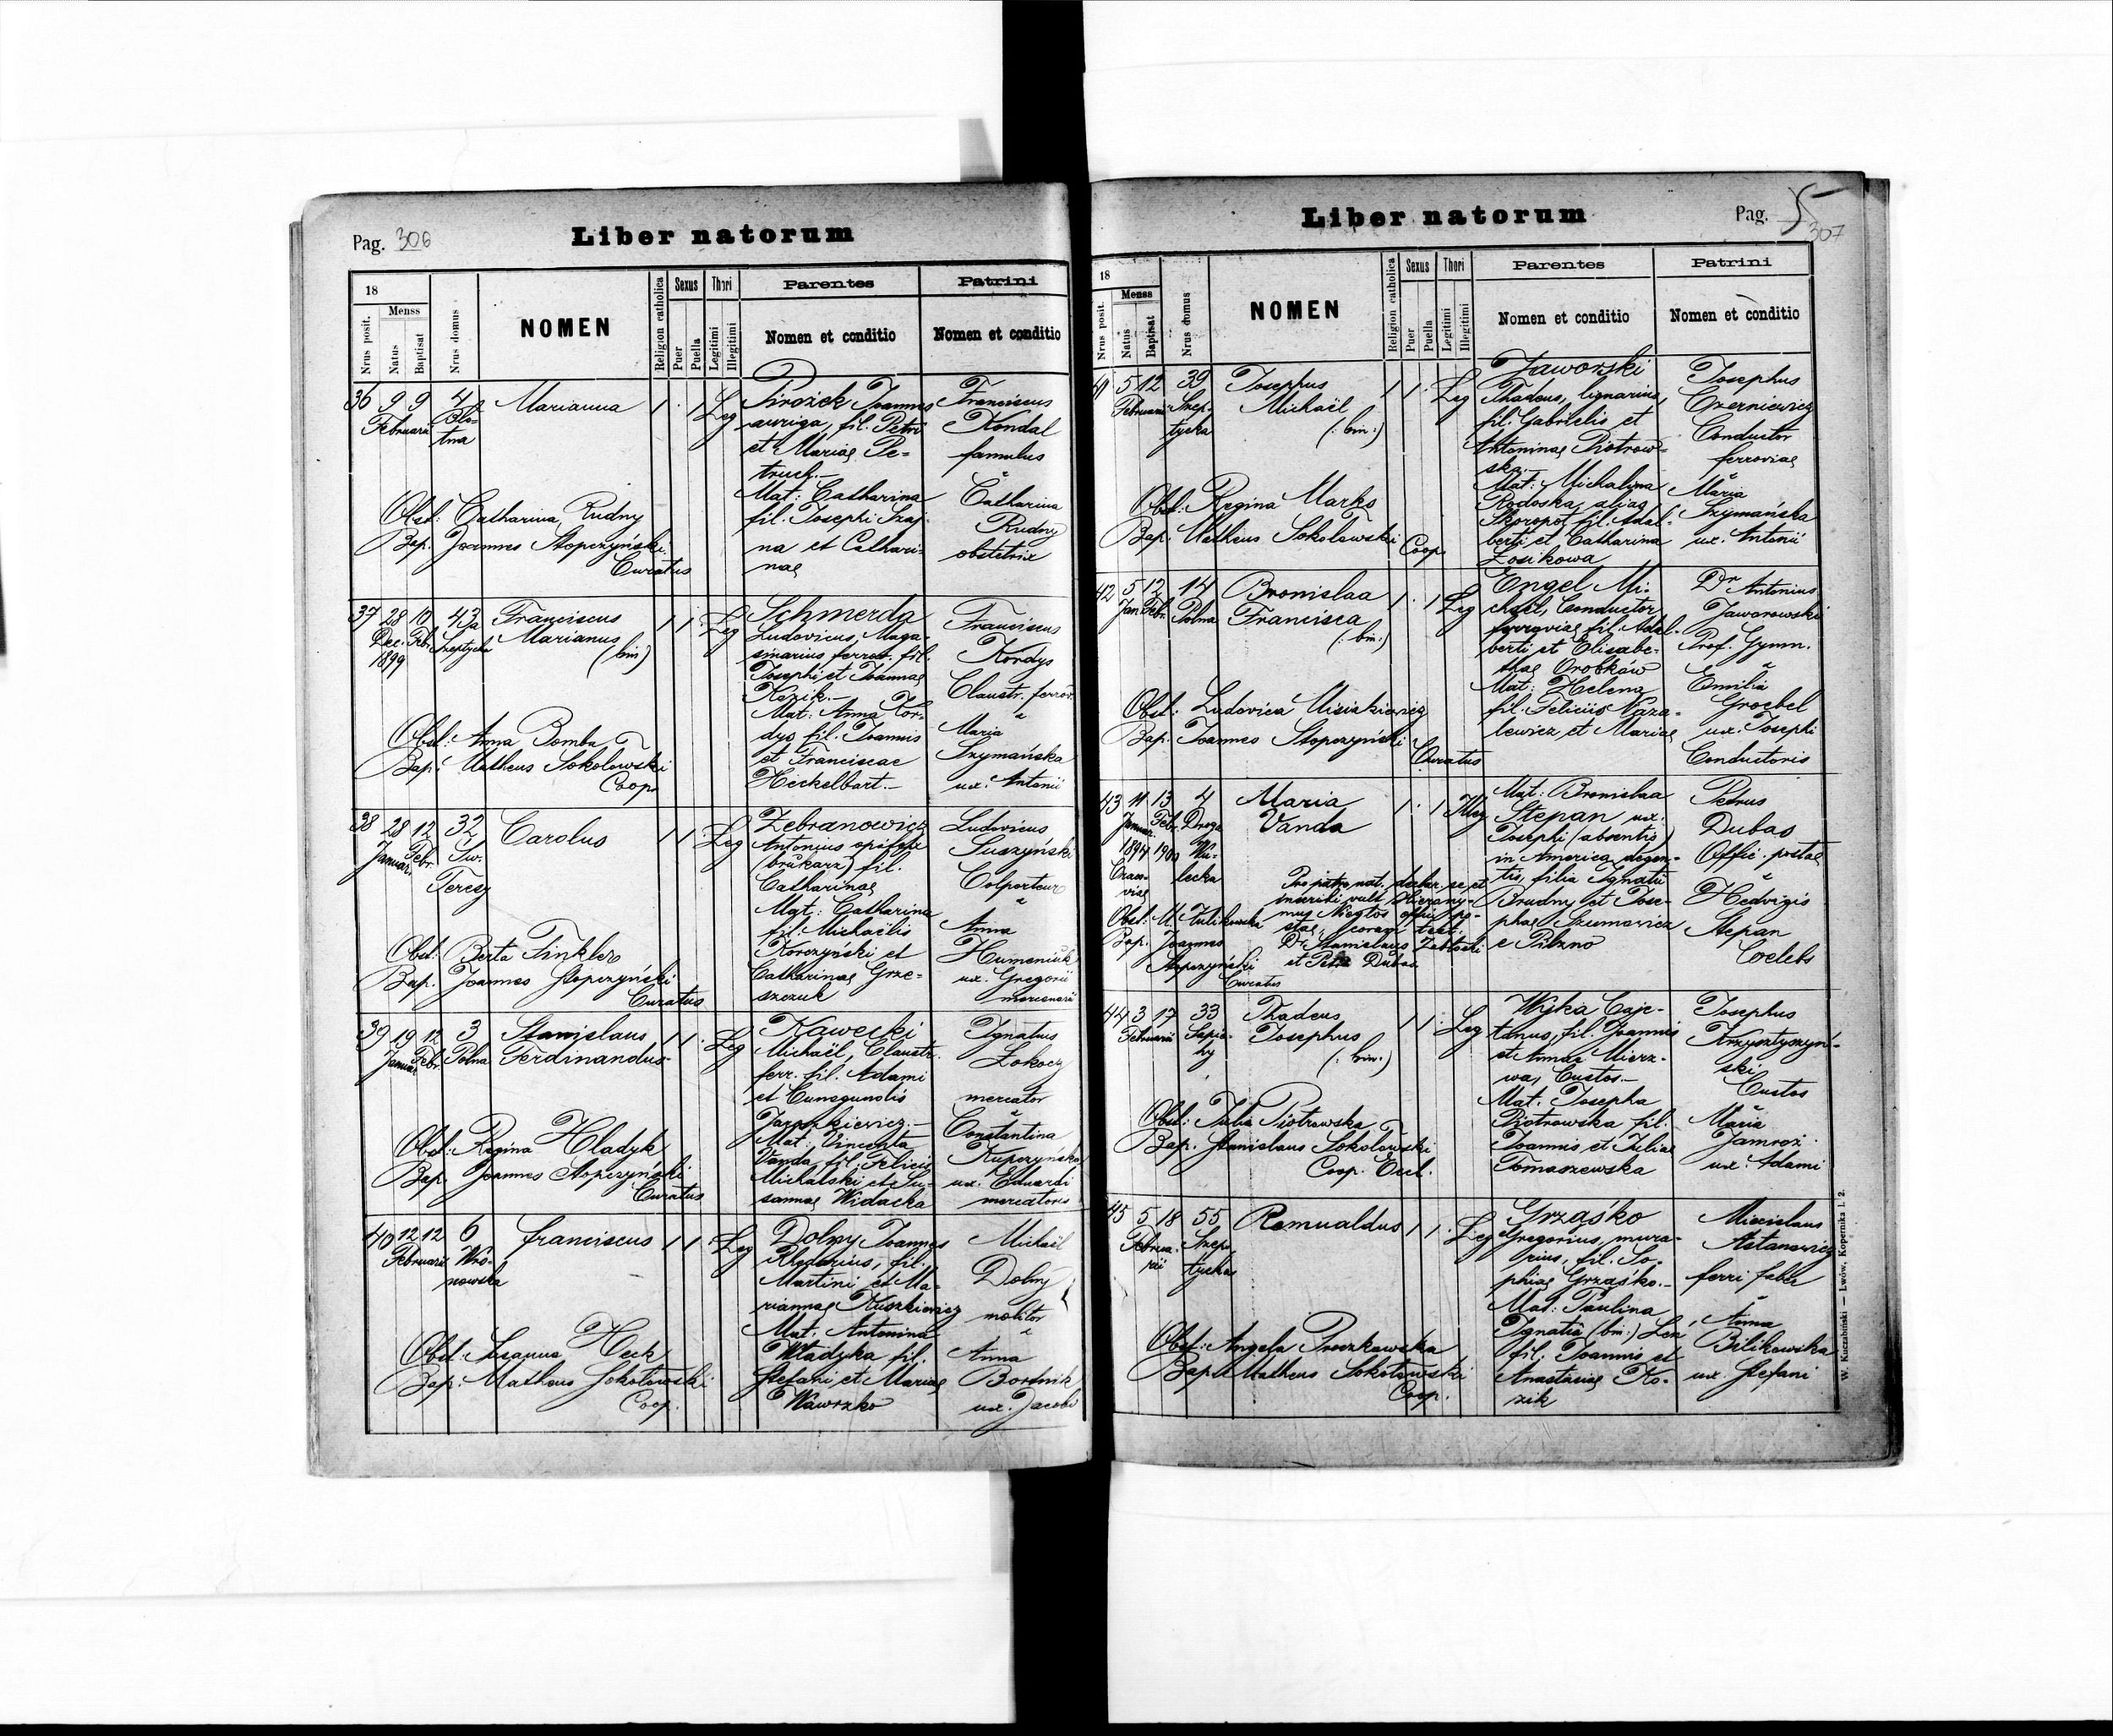 Pag. 306
Liber natorum
18
Menss
Nrus posit.
Natus
Baptisat
Nrus domus
NOMEN
Religion catholica
Sexus
Puer
Puella
Thori
Legitimi
Illegitimi
Parentes
Nomen et conditio
Patrini
Nomen et conditio
36 9 9
Februarii
Marianna
1 1 Leg
Pirożek Joannes
auriga, fil. Petri
et Mariae Pe-
truch.-
Mat: Catharina
fil. Josephi Szaj-
na et Cathari-
nae
Franciscus
Kondal
famulus
Catharina
Rudny
obstetrix
Obst: Catharina Rudny
Bap. Joannes Stopczyński
Curatus
37 28 10 43a
Dec. Feb. Szeptycka
1899
Franciscus
Marianus
(bin)
1 1 Leg
Schmerda
Ludovicus, Maga-
sinarius ferrov. fil.
Josephi et Joannae
Kozik.-
Mat: Anna Kor-
dys fil. Joannis
et Franciscae
Heckelbart.-
Franciscus
Kordys
Claustr. ferrov.
Maria
Szymańska
ux. Antonii
Obst: Anna Bomba
Bap: Matheus Sokolowski
Coop.
38 28 12 32
Januar. Febr. Św.
Teresy
Carolus
1 1 Leg
Zebranowicz
Antonius opifex
(brukarz) fil.
Catharinae
Mat: Catharina
fil. Michaëlis
Korczyński et
Catharinae Grze-
szczuk
Ludovicus
Suszyński
Colporteur
Anna
Humeniuk
ux. Gregorii
mercenarii
Obst: Berta Finkler
Bap. Joannes Stopczyński
Curatus
39 19 12 3
Januar. Febr. Polna
Stanislaus
Ferdinandus
1 1 Leg
Kawecki
Michaël, Claustr.
ferr. fil. Adami
et Cunegundis
Mat: Vincenta
Vanda fil. Felicis
Michalski et Su-
sannae Widacka
Ignatus
Żokocz
mercator
Constantina
Kupczyńska
ux. Eduardi
mercatoris
Obst: Regina Hladyk
Bap. Joannes Stopczyński
Curatus
40 12 12 6
Februarii Wro-
nowska
Franciscus
1 1 Leg
Dolny Joannes
fil.
Martini et Ma-
riannae Kuszkiewicz
Mat. Antonina
Wladyka fil.
Stefani et Mariae
Wawrzko
Michaël
Dolny
molitor
Anna
Bordnik
ux. Jacobi
Obst: Susanna Heck
Bap: Matheus Sokołowski
Coop.
Liber natorum
Pag. 5
307
18
Menss
Nrus posit.
Natus
Baptisat
Nrus domus
NOMEN
Religion catholica
Sexus
Puer
Puella
Thori
Legitimi
Illegitimi
Parentes
Nomen et conditio
Patrini
Nomen et conditio
41 5 12 39
Februarii Szep-
tycka
Josephus
Michaël
(: bin :)
1 1 Leg
Jaworski
Thadeus, lignarius,
fil. Gabrielis et
Antoninae Piotrow-
ska.-
Mat: Michalina
Rodoska alias
Skoropot fil. Adal-
berti et Catharina
Zosikowa
Josephus
Czerniewicz
Conductor
ferroviae
Maria
Szymańska
ux. Antonii
Obst: Regina Marko
Bap. Matheus Sokolowski Coop.
42 5 12 14
Jan. Febr. Polna
Bronislaa
Francisca
(: bin :)
1 1 Leg
Engel Mi-
chaël, Conductor
ferroviae fil. Adal-
berti et Elisabe-
thae Orobków
Mat: Helena
fil. Feliciis Naza-
lewicz et Mariae
Dr Antonius
Jaworowski
Prof. Gymn.
Emilia
Groebel
ux. Josephi
Conductoris
Obst: Ludovica Misiakiewicz
Bap. Joannes Stopczyński
Curatus
43 11 13 4
Januar. Febr. Droga
1894 1900 Wu-
lecka
Maria
Vanda
1 1 Illeg
Mat: Bronislaa
Stepan ux.
Josephi (absentis)
in America degen-
tis, filia Ignatii
Brudny et Jose-
phae Szumowicz
e Pilzno
Petrus
Dubas
Offic. postae
Hedvigis
Stepan
Coelebs
Pro patre nat. declar. se et
inscribi vult, Hierony-
mus offic. po-
stae, coram test.
Dr Stanislaus Zabłocki
et Petro Dubas
Obst: M. Tulikowska
Bap. Joannes
Stopczyński
Curatus
44 3 17 33
Februarii Sapie-
hy
Thadeus
Josephus
(: bin :)
1 1 Leg
Wojka Caje-
tanus, fil. Joannis
et Annae Mierz-
wa, Custos.-
Mat. Josepha
Piotrowska fil.
Joannis et Juliae
Tomaszewska
Josephus
Krzysztyszyń-
ski
Custos
Maria
Jamroz
ux. Adami
Obst: Julia Piotrowska
Bap. Stanislaus Sokołowski
Coop. Eccl.
45 5 18 55
Februa-
rii Szep-
tycka
Romualdus
1 1 Leg
Grzaśko
Gregorius, mura-
rius, fil. So-
phiae Grzaśko.-
Mat: Paulina
Ignatia (bin.) Len
fil. Joannis et
Anastasiae Ko-
zik
Miecislaus
Astanowicz
ferri faber
Anna
Bilikowska
ux. Stefani
Obst: Angela Proszkowska
Bap. Matheus Sokołowski
Coop.
W. Kuczabiński — Lwów, Kopernika l. 2.